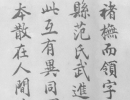 褚橅而領字
縣范氏武進
此互有異同
本散在人間